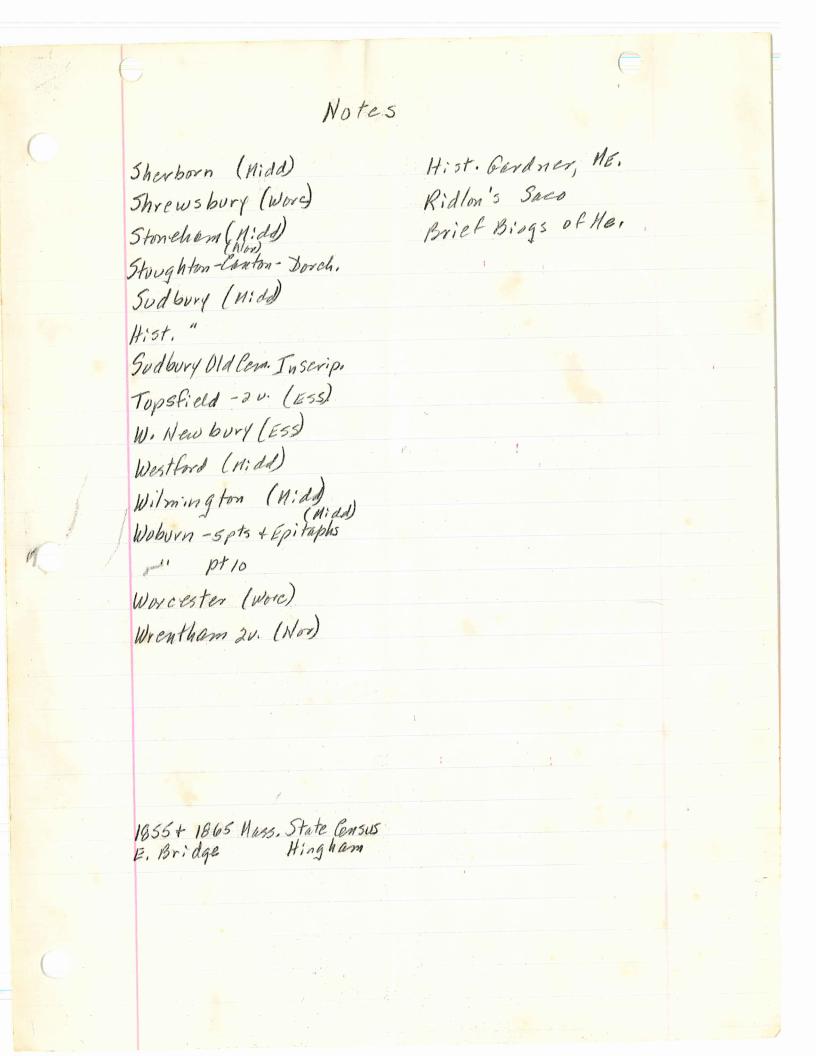 Notes
Sherborn (Midd)
Shrewsbury (Worc)
Stoneham (Midd)
(Nor)
Stoughton-Canton-Dorch.
Sudbury (Midd)
Hist. "
Sudbury Old Cem. Inscrip.
Topsfield -2v. (Ess)
W. Newbury (Ess)
Westford (Midd)
Wilmington (Midd)
(Midd)
Woburn -5pts + Epitaphs
" pt 10
Worcester (Worc)
Wrentham 2v. (Nor)
Hist. Gardner, ME.
Ridlon's Saco
Brief Biogs of Me.
1855 + 1865 Mass. State Census
E. Bridge Hingham